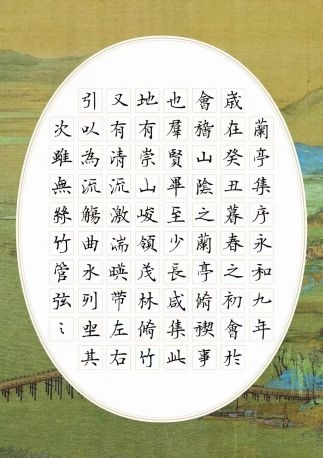 蘭亭集序永和九年
歲在癸丑暮春之初會於
會稽山陰之蘭亭脩禊事
也羣賢畢至少長咸集此
地有崇山峻領茂林脩竹
又有清流激湍暎帶左右
引以為流觴曲水列坐其
次雖無絲竹管弦之